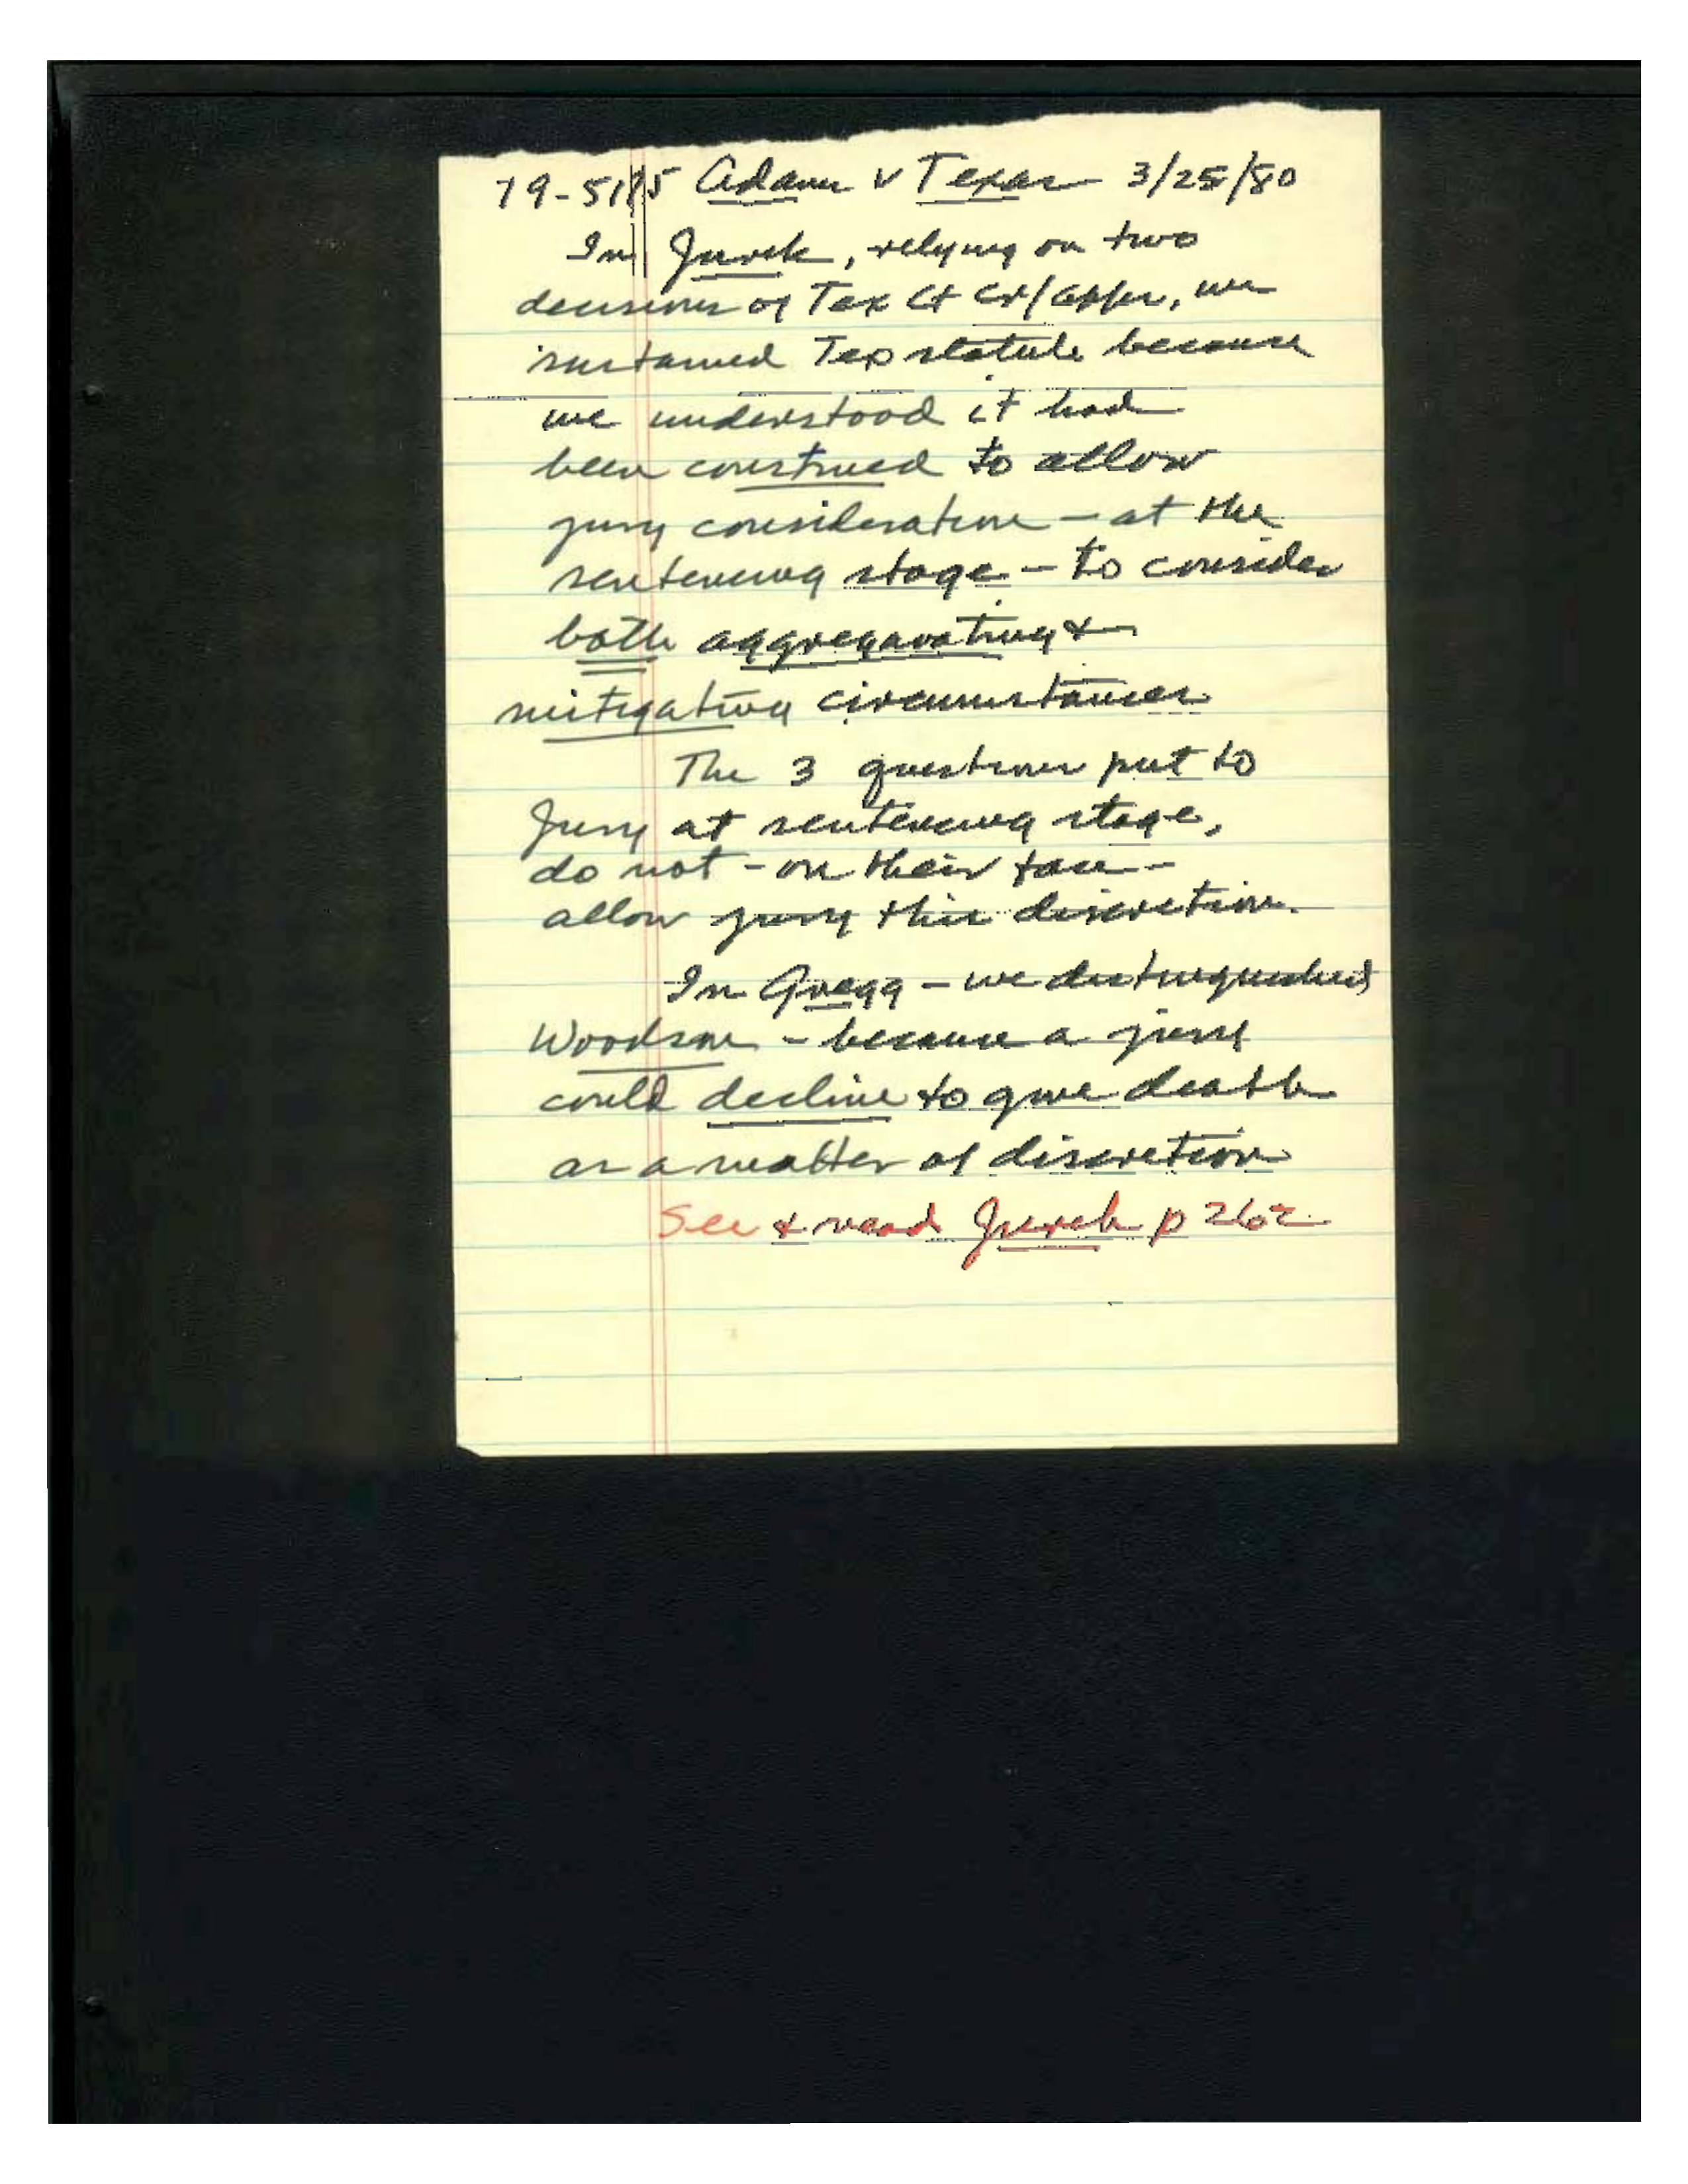 79-5175 Adams v Texas 3/25/80
In Jurek, relying on two
decisions of Tex Ct Cr/Appes, we
sustained Tex statute because
we understood it had
been construed to allow
jury consideration - at the
sentencing stage - to consider
both aggregavating &
mitigating circumstances
The 3 questions put to
Jury at sentencing stage,
do not - on their face -
allow jury this discretion.
In Gregg - we distinguished
Woodson - because a jury
could decline to give death
as a matter of discretion
See & read Jurek p 262